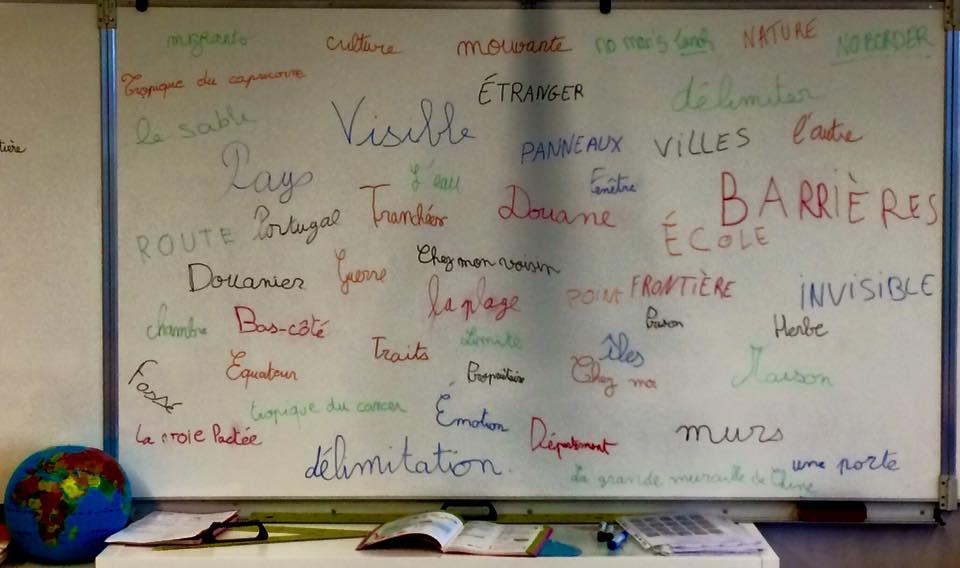 migrants culture mouvante no man's land NATURE NO BORDER
Tropique du capricorne ÉTRANGER délimiter
le sable Visible PANNEAUX ViLLES l'autre
tière
Pays L'eau Fenêtre BARRIÈRES
ROUTE Portugal Tranchées Douane ÉCOLE
Douanier Guerre Chez mon voisin
la plage POINT FRONTIÈRE INVISIBLE
chambre Bas-côté Limite Herbe
Traits Îles
Fossé Équateur Propriétaire Chez moi Maison
tropique du cancer Émotion
La voie Lactée Département murs
délimitation. La grande muraille de Chine une porte